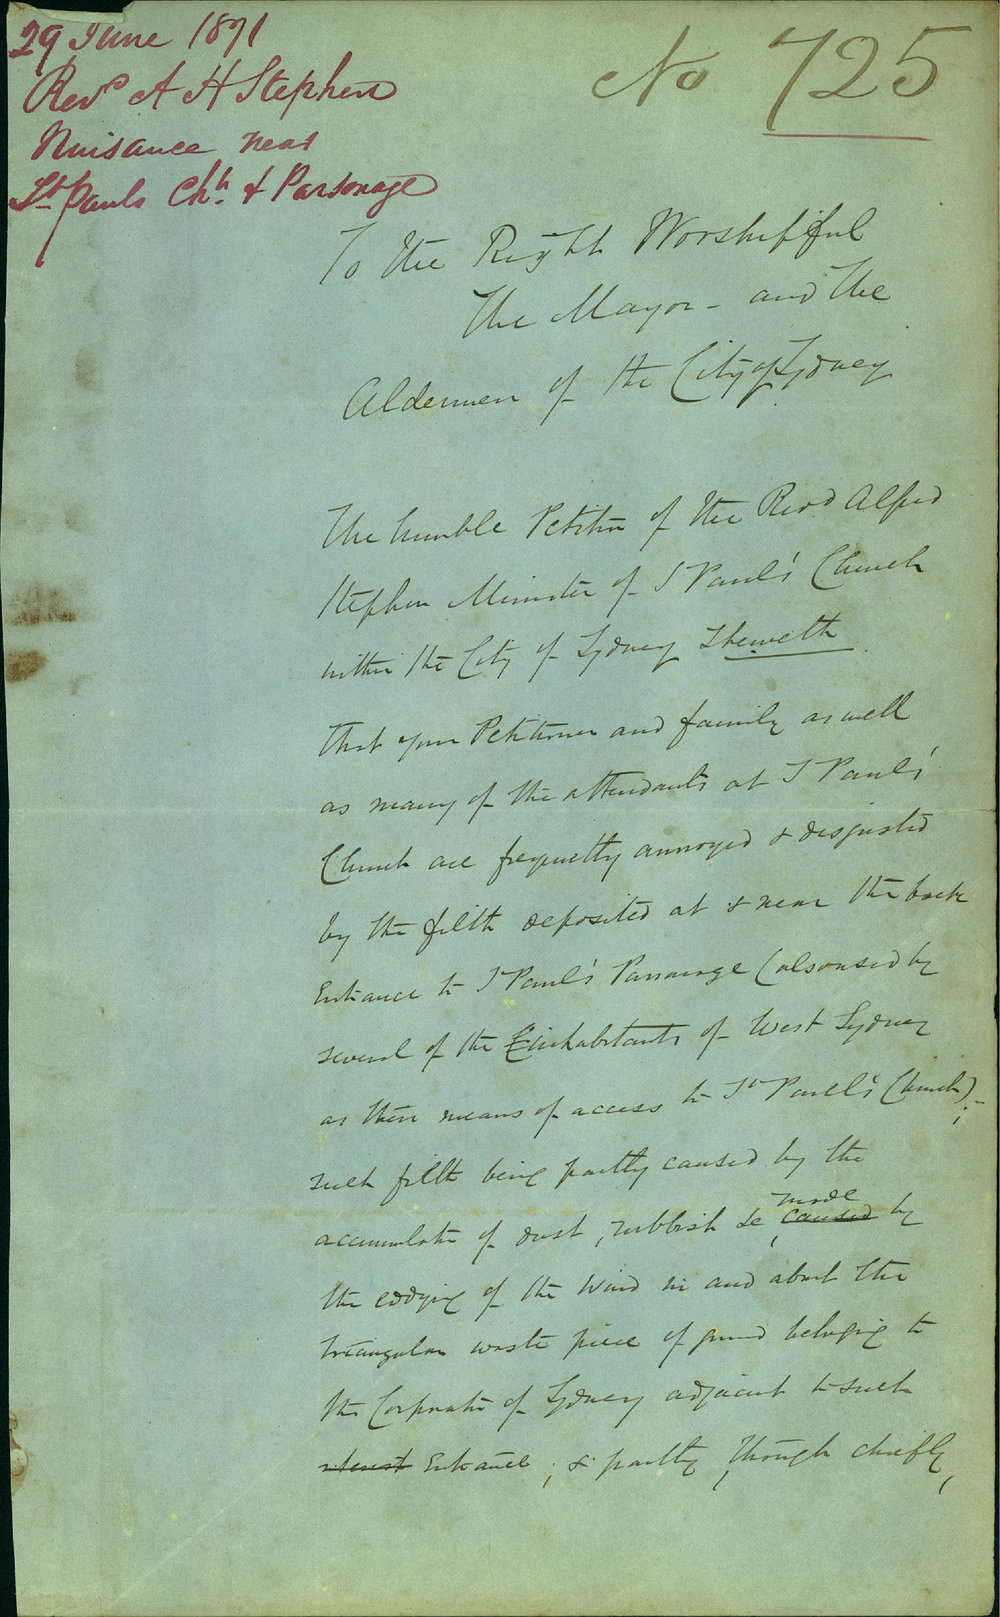 29 June 1871
Revd A H Stephen
Nuisance near
St. Pauls Chh. & Parsonage
No 725
To the Right Worshipful
The Mayor - and the
Aldermen of the City of Sydney
The humble Petition of the Revd Alfred
Stephen Minister of St Paul's Church
within the City of Sydney Sheweth
That your Petitioner and family as well
as many of the attendants at St Paul's
Church are frequently annoyed & disgusted
by the filth deposited at & near the back
Entrance to St Paul's Parsonage (also used by
several of the Inhabitants of West Sydney
as their means of access to St Paul's Church);-
such filth being partly caused by the
accumulation of dust, rubbish &c caused made by
the eddying of the wind in and about the
triangular waste piece of ground belonging to
the Corporation of Sydney adjacent to such
Entrance; & partly, though chiefly,